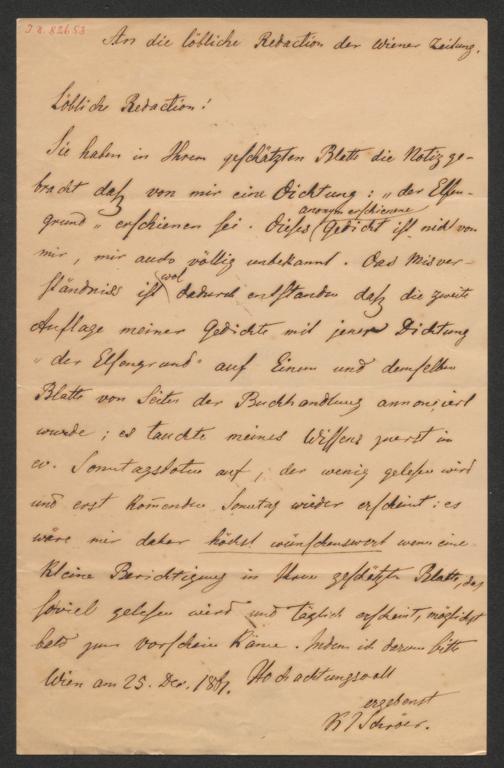 An die löbliche Redaction der Wiener Zeitung.
Löbliche Redaction!
Sie haben in Ihrem geschätzten Blatte die Notiz ge-
bracht daß von mir eine Dichtung: „der Elfen-
grund" erschienen sei. Dieses anonym erschienene Gedicht ist nicht von
mir, mir auch völlig unbekannt. Das Misver-
ständnis ist wol dadurch entstanden daß die zweite
Auflage meiner Gedichte mit jener Dichtung
„der Elfengrund" auf Einem und demselben
Blatte von Seiten der Buchhandlung annonciert
wurde; es tauchte meines Wissens zuerst im
Sonntagsboten auf, der wenig gelesen wird
und erst kom̄enden Sonntag wieder erscheint: es
wäre mir daher höchst wünschenswert wenn eine
kleine Berichtigung in Ihrem geschätzten Blatte, das
soviel gelesen wird und täglich erscheint, möglichst
bald zum vorschein käme. Indem ich darum bitte
Wien am 25. Dec. Hochachtungsvoll
ergebenst
KJSchröer.